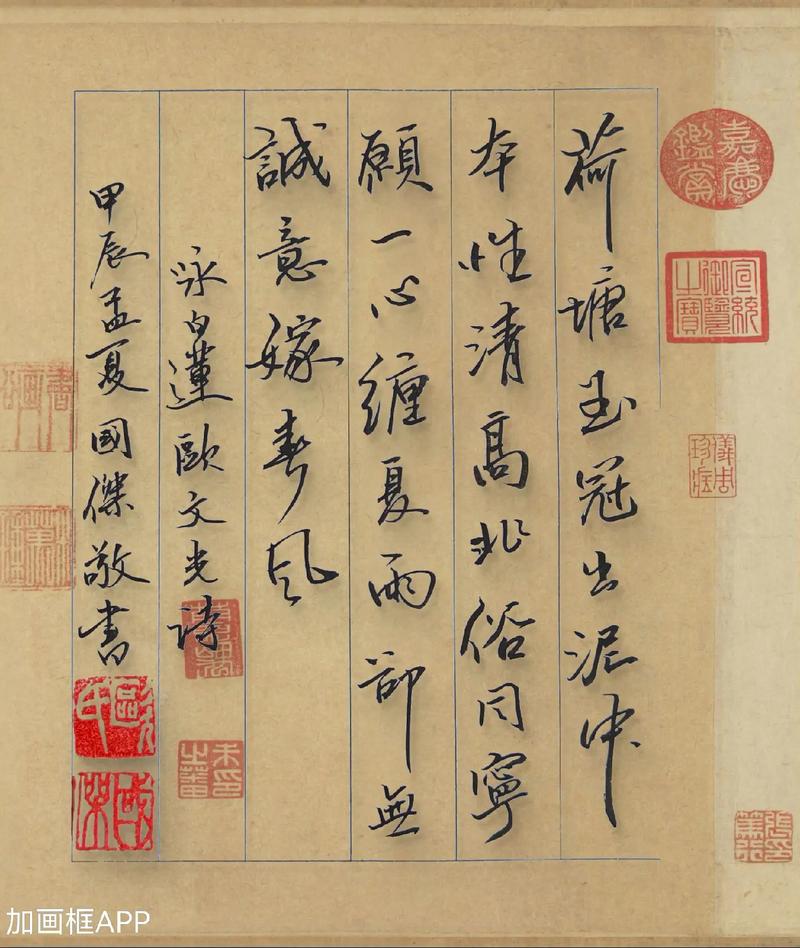 荷塘玉冠出泥中
本性清高非俗同寧
願一心纏夏雨卻無
誠意嫁春風
詠白蓮歐文光詩
甲辰孟夏國傑敬書
嘉慶鑑賞
宣統御覽之寶
儀周珍藏
歐氏
國傑
加画框APP